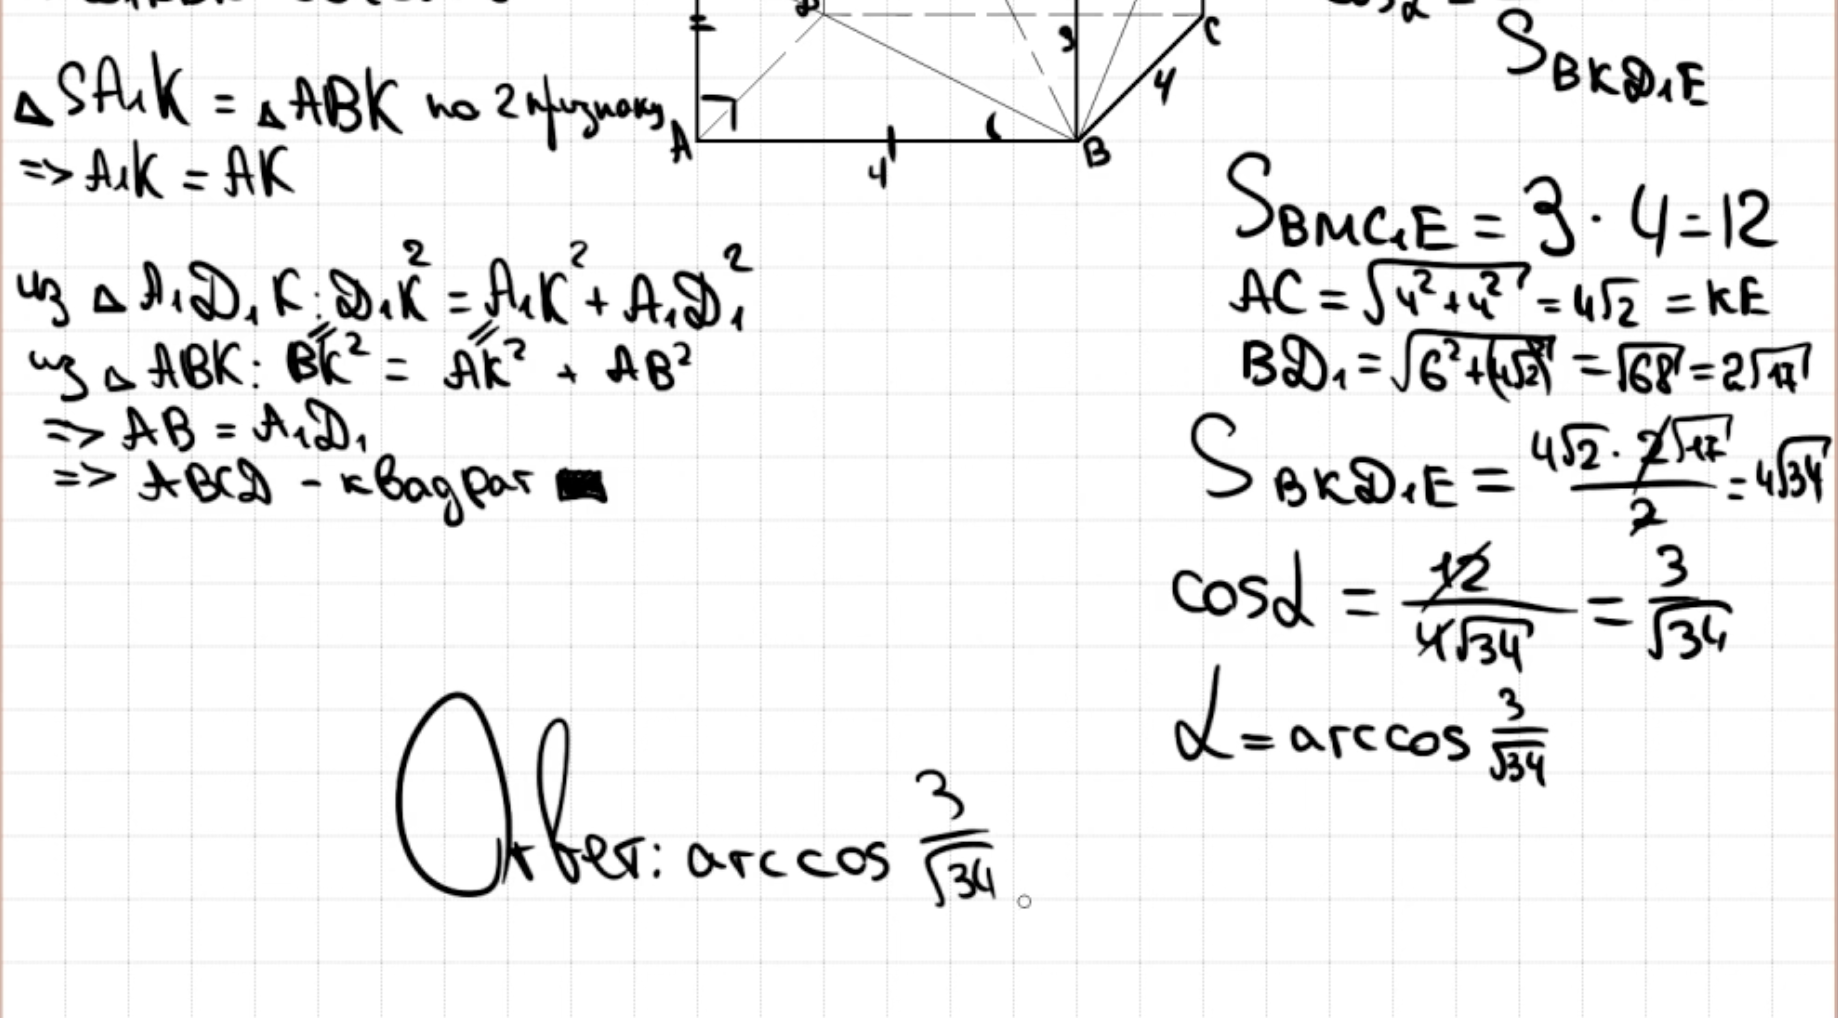 △SA₁K = △ABK по 2 признаку
=> A₁K = AK
из △A₁D₁K: D₁K² = A₁K² + A₁D₁²
из △ABK: BK² = AK² + AB²
=> AB = A₁D₁
=> ABCD - квадрат
=
A
4
6
B
3
4
C
cosα =
S BKD₁E
S BMC₁E = 3 · 4 = 12
AC = √(4² + 4²) = 4√2 = KE
BD₁ = √(6² + (4√2)²) = √68 = 2√17
S BKD₁E = (4√2 · 2√17)/2 = 4√34
cosα = 12/(4√34) = 3/√34
α = arccos 3/√34
Ответ: arccos 3/√34.